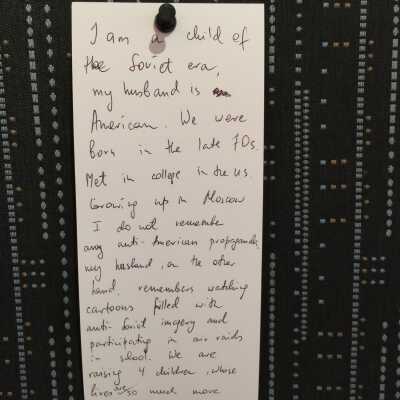 I am a child of
the Soviet era,
my husband is
American. We were
born in the late 70s.
Met in college in the US.
Growing up in Moscow
I do not remember
any anti-American propaganda,
my husband, on the other
hand, remembers watching
cartoons filled with
anti-Soviet imagery and
participating in air raids
in school. We are
raising 4 children, whose
lives are so much more